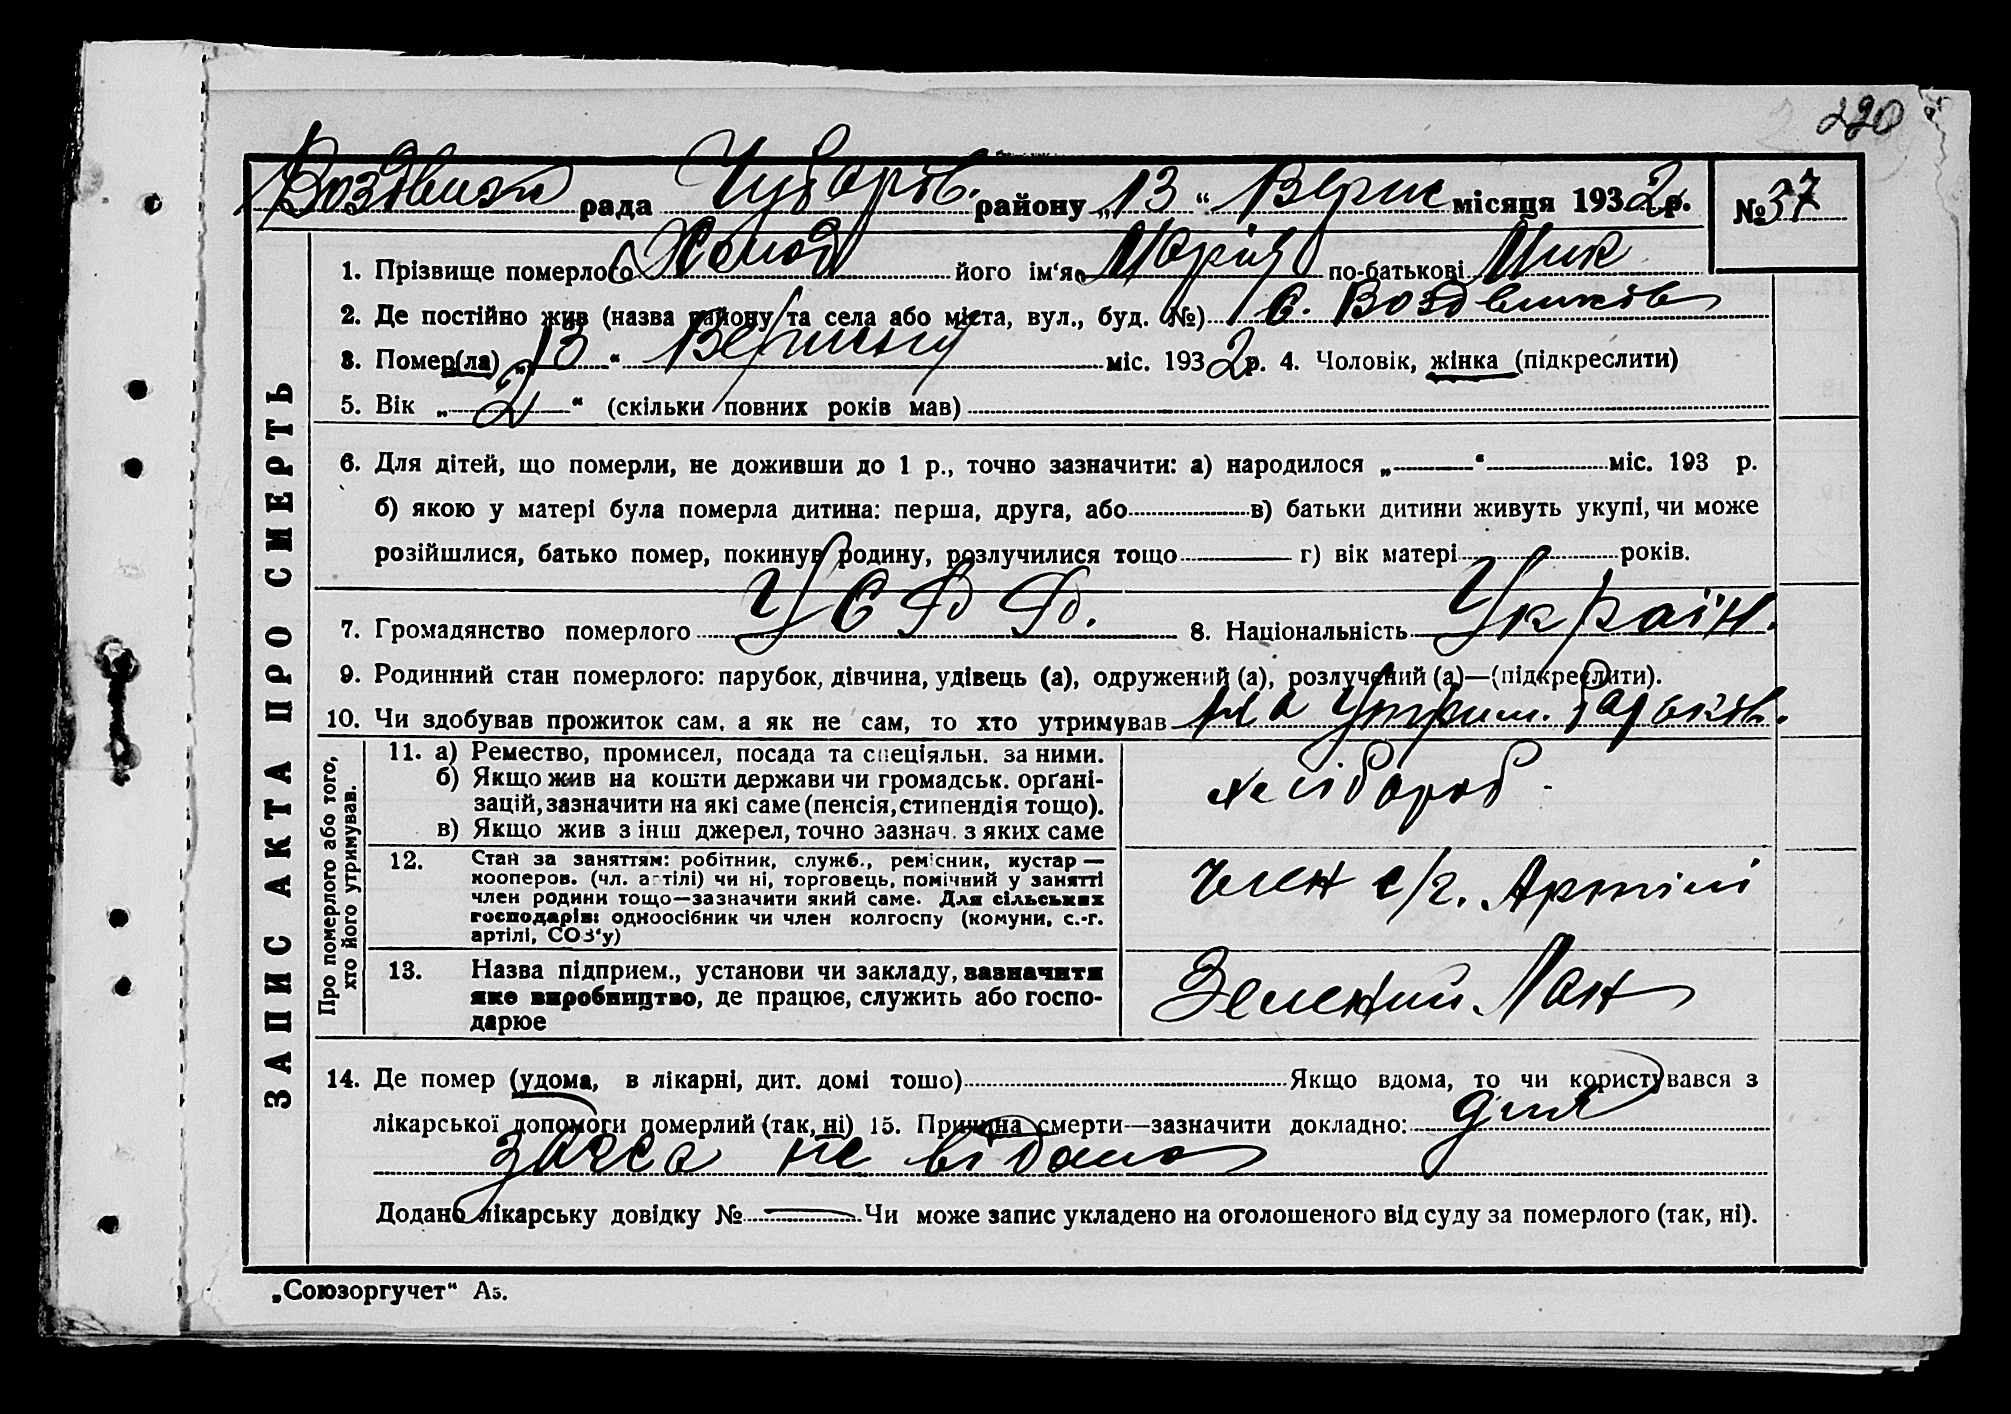 220
Воздвиж рада Чубарів. району „13“ Верис місяця 1932 р. № 37
ЗАПИС АКТА ПРО СМЕРТЬ
1. Прізвище померлого його ім‘я Марія по-батькові Мик
2. Де постійно жив (назва району та села або міста, вул., буд. №) с. Воздвижків
3. Помер(ла) „13“ Верисня міс. 1932 р. 4. Чоловік, жінка (підкреслити)
5. Вік „2“ (скільки повних років мав)
6. Для дітей, що померли, не доживши до 1 р., точно зазначити: а) народилося „ “ міс. 193 р.
б) якою у матері була померла дитина: перша, друга, або в) батьки дитини живуть укупі, чи може
розійшлися, батько помер, покинув родину, розлучилися тощо г) вік матері років.
7. Громадянство померлого УСРР. 8. Національність Україн.
9. Родинний стан померлого: парубок, дівчина, удівець (а), одружений (а), розлучений (а)—(підкреслити).
10. Чи здобував прожиток сам, а як не сам, то хто утримував на утрим. батьків.
Про померлого або того, хто його утримував.
11. а) Ремество, промисел, посада та спеціяльн. за ними.
б) Якщо жив на кошти держави чи громадськ. орґані-
зацій, зазначити на які саме (пенсія, стипендія тощо).
в) Якщо жив з інш джерел, точно зазнач. з яких саме
хлібороб.
12. Стан за заняттям: робітник, служб., ремісник, кустар —
кооперов. (чл. артілі) чи ні, торговець, помічний у занятті
член родини тощо—зазначити який саме. Для сільських
господарів: одноосібник чи член колгоспу (комуни, с.-г.
артілі, СОЗ‘у)
член с/г. Артілі
13. Назва підприєм., установи чи закладу, зазначити
яке виробництво, де працює, служить або госпо-
дарює
Зелений Лан
14. Де помер (удома, в лікарні, дит. домі тошо) Якщо вдома, то чи користувався з
лікарської допомоги померлий (так, ні) 15. Причина смерти—зазначити докладно: для
загса не відома
Додано лікарську довідку № — Чи може запис укладено на оголошеного від суду за померлого (так, ні).
„Союзоргучет“ А5.